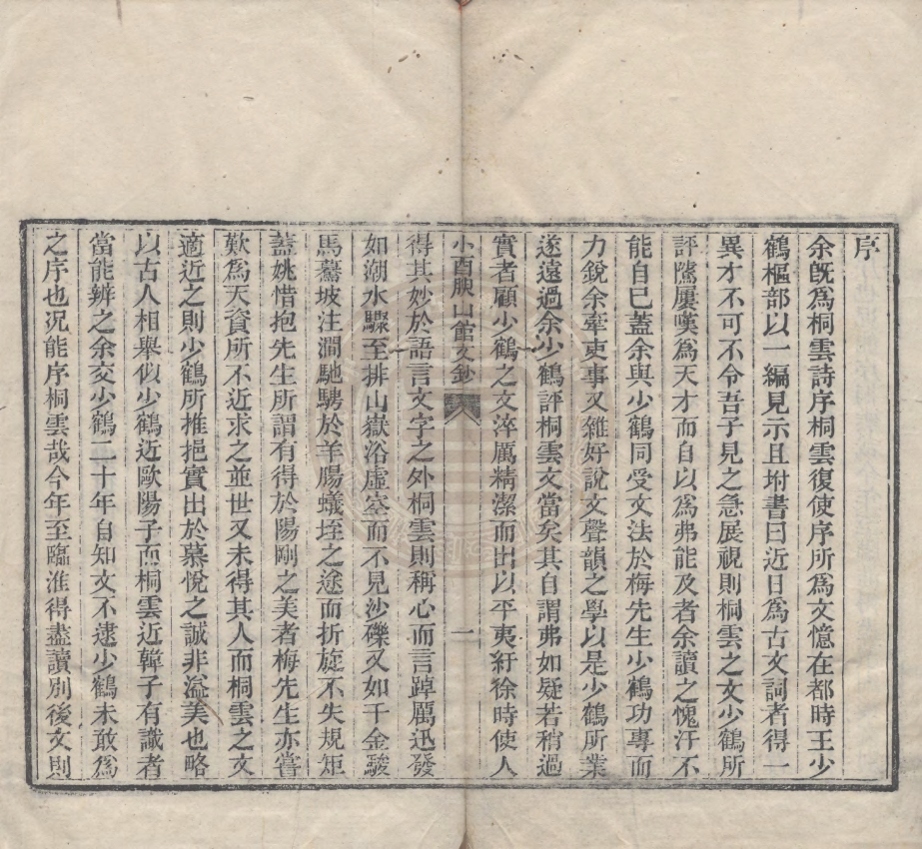 序
余旣爲桐雲詩序桐雲復使序所爲文憶在都時王少
鶴樞部以一編見示且坿書曰近日爲古文詞者得一
異才不可不令吾子見之急展視則桐雲之文少鶴所
評隲屢嘆爲天才而自以爲弗能及者余讀之愧汗不
能自已蓋余與少鶴同受文法於梅先生少鶴功專而
力銳余牽吏事又雜好說文聲韻之學以是少鶴所業
遂遠過余少鶴評桐雲文當矣其自謂弗如疑若稍過
實者顧少鶴之文淬厲精潔而出以平夷紆徐時使人
小酉腴山館文鈔 一
得其妙於語言文字之外桐雲則稱心而言踔厲迅發
如潮水驟至排山嶽浴虛空而不見沙礫又如千金駿
馬驀坡注澗馳騁於羊腸蟻垤之途而折旋不失規矩
蓋姚惜抱先生所謂有得於陽剛之美者梅先生亦嘗
歎爲天資所不近求之並世又未得其人而桐雲之文
適近之則少鶴所推挹實出於慕悅之誠非溢美也略
以古人相舉似少鶴近歐陽子而桐雲近韓子有識者
當能辨之余交少鶴二十年自知文不逮少鶴未敢爲
之序也況能序桐雲哉今年至臨淮得盡讀別後文則